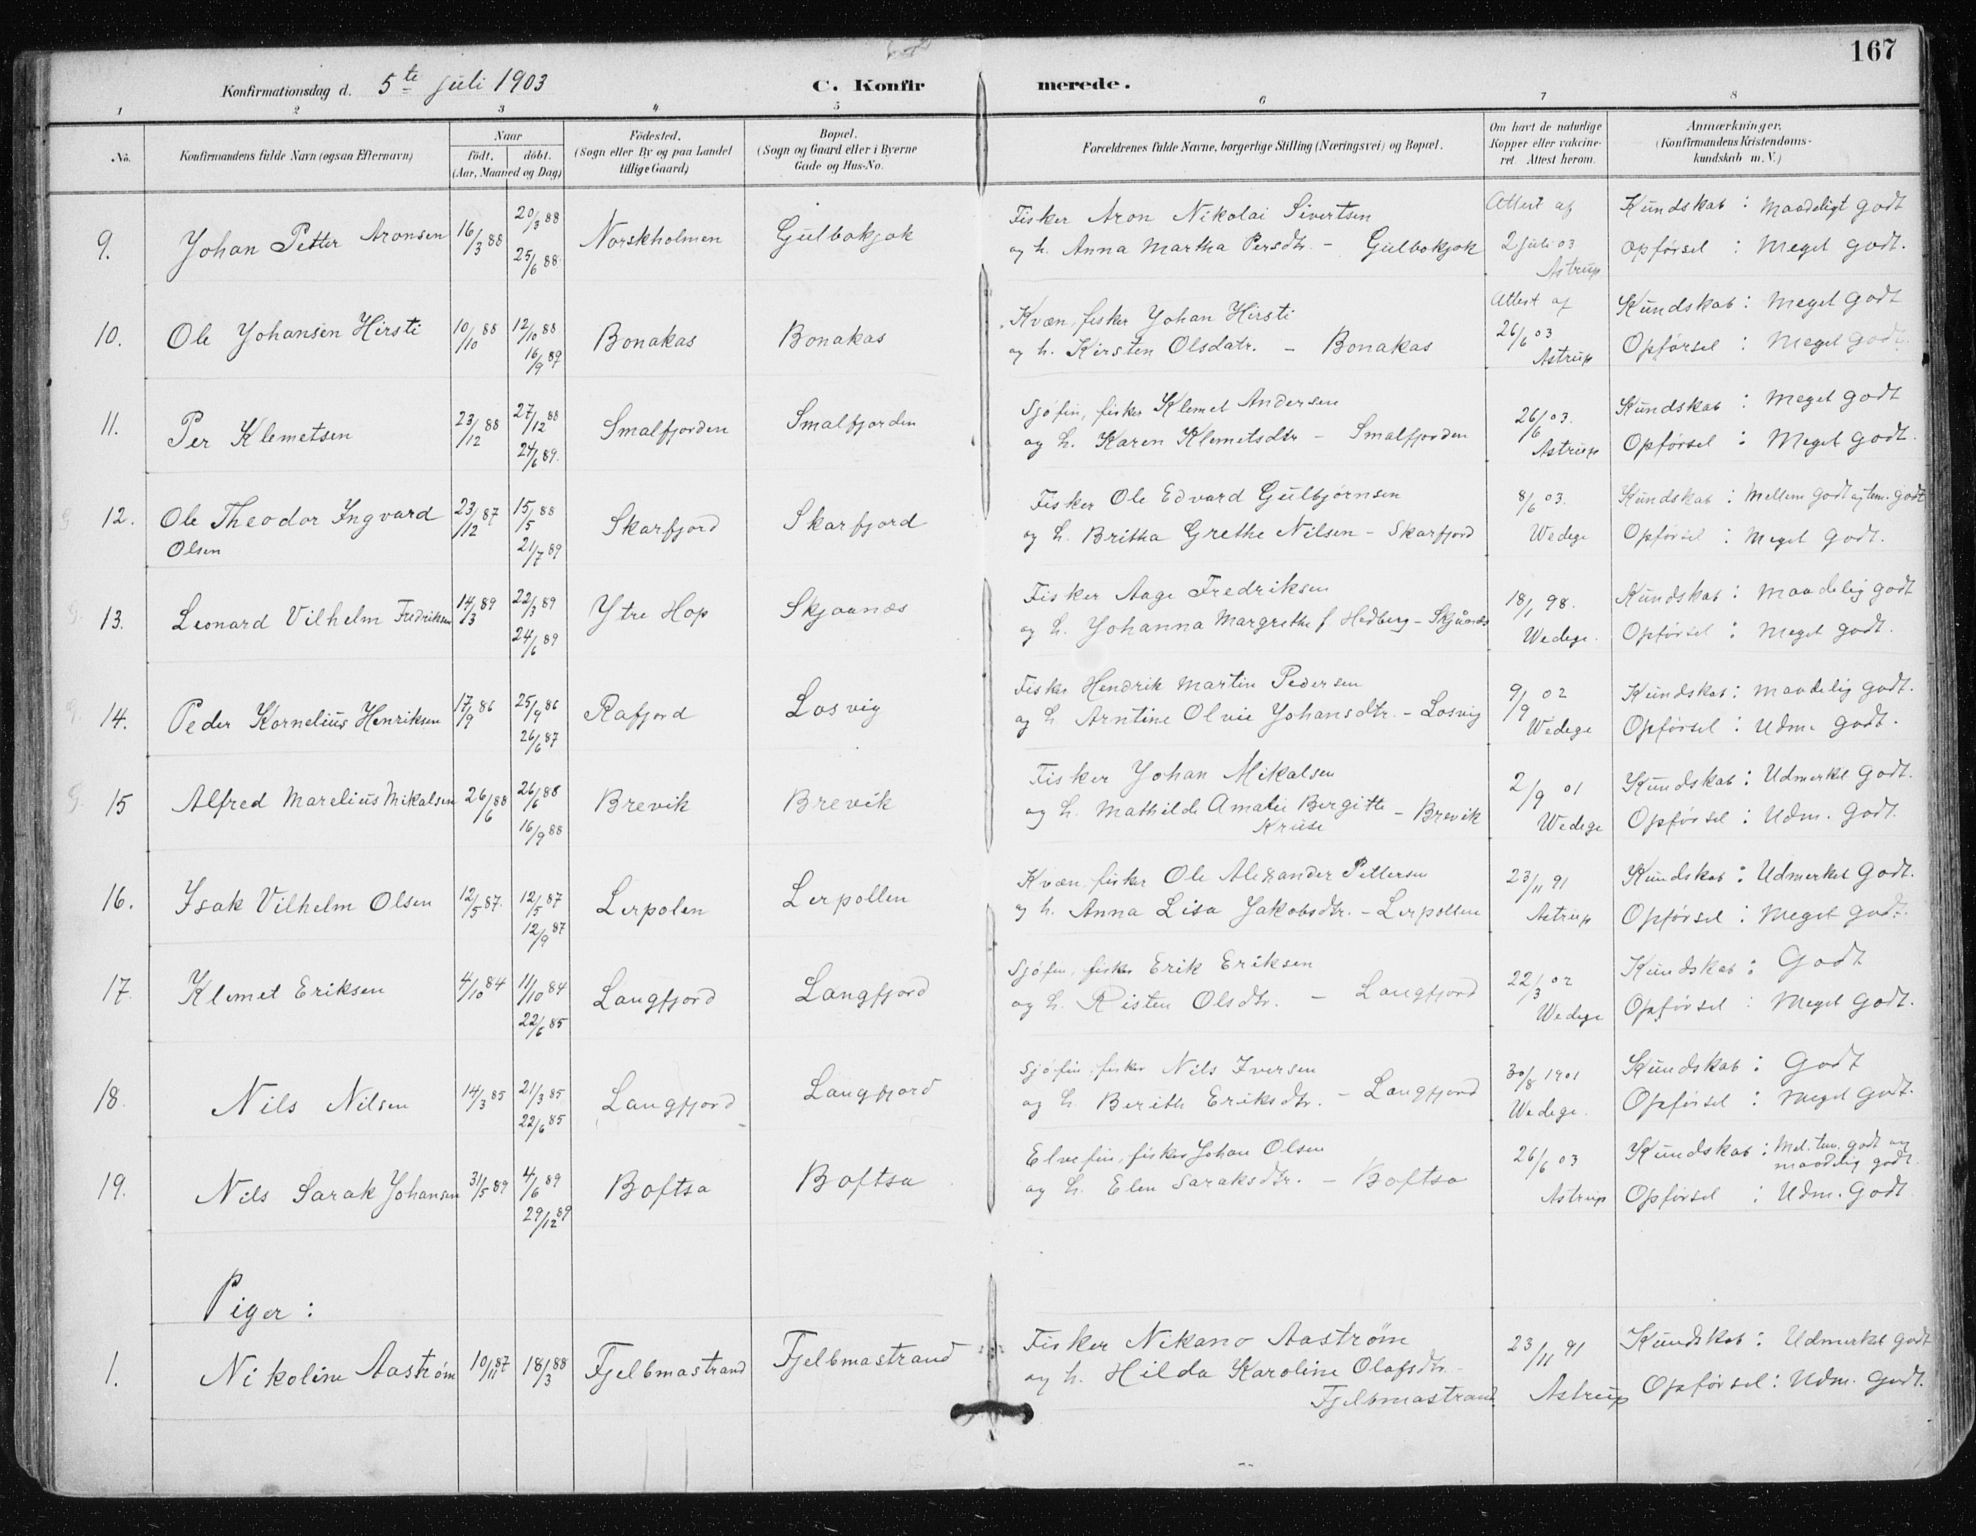 167
Konfirmationsdag d. 5te juli 1903 C. Konfir merede.
1 2 3 4 5 6 7 8
No. Konfirmandens fulde Navn (ogsaa Efternavn)
Naar
födt. döbt.
(Aar, Maaned og Dag)
Födested.
(Sogn eller By og paa Landet
tillige Gaard)
Bopæl.
(Sogn og Gaard eller i Byerne
Gade og Hus-No.
Forældrenes fulde Navne, borgerlige Stilling (Næringsvei) og Bopæl.
Om havt de naturlige
Kopper eller vakcine-
ret Attest herom.
Anmærkninger.
(Konfirmandens Kristendoms-
kundskab m. V.)
9. Johan Petter Aronsen 16/3 88 20/3 88 25/6 88 Norskholmen Gulbokjok
Fisker Aron Nikolai Sivertsen
og h. Anna Martha Persdtr. - Gulbokjok
Attest af
2 juli 03
Astrup
Kundskab : Maadeligt godt
Opførsel : Meget godt.
10. Ole Johansen Hirsti 10/10 88 12/10 88 16/9 89 Bonakas Bonakas
Kvæn, fisker Johan Hirsti
og h. Kirsten Olsdatr. - Bonakas
Attest af
26/6 03
Astrup
Kundskab : Meget godt
Opførsel : Meget godt
11. Per Klemetsen 23/12 88 27/12 88 24/6 89. Smalfjorden Smalfjorden
Sjøfin, fisker Klemet Andersen
og h. Karen Klemetsdtr - Smalfjorden
26/6 03.
Astrup
Kundskab : Meget godt
Opførsel : Meget godt.
12. Ole Theodor Ingvard
Olsen
23/12 87 15/5 88 21/7 89 Skarfjord Skarfjord
Fisker Ole Edvard Gulbjørnsen
og h. Britha Grethe Nilsen - Skarfjord
8/6 03.
Wedege
Kundskab : Mellem godt og tem. godt
Opførsel : Meget godt.
13. Leonard Vilhelm Fredriksen 14/3 89 22/3 89 24/6 89 Ytre Hop Skjaanæs
Fisker Aage Fredriksen
og h. Johanna Margrethe f Hedberg - Skjånæs
18/1 98.
Wedege.
Kundskab : Maadelig godt
Opførsel : Meget godt.
14. Peder Kornelius Henriksen 17/9 86 25/9 86 26/6 87 Rafjord Losvig
Fisker Hendrik Martin Pedersen
og h Arntine Olvie Johansdtr. - Losvig
9/9 02
Wedege
Kundskab : maadelig godt.
Opførsel : Udm. godt.
15 Alfred Marelius Mikalsen 26/6 88 26/6 88 16/9 88 Brevik Brevik
Fisker Johan Mikalsen
og h. Mathilde Amalie Bergitte - Brevik
Kruse
2/9 01
Wedege
Kundskab : Udmerket godt.
Opførsel : Udm. godt.
16. Isak Vilhelm Olsen 12/5 87. 12/5 87 12/9 87 Lerpolen Lerpollen
Kvæn, fisker Ole Alexander Pettersen
og h. Anna Lisa Jakobsdtr. - Lerpollen
23/11 91
Astrup
Kundskab : Udmerket godt.
Opførsel : Meget godt.
17. Klemet Eriksen 4/10 84 11/10 84 22/6 85 Langfjord Langfjord
Sjøfin, fisker Erik Eriksen
og h. Risten Olsdtr. - Langfjord
22/3 02
Wedege
Kundskab : Godt
Opførsel : Meget godt.
18. Nils Nilsen 14/3 85 21/3 85 22/6 85 Langfjord Langfjord
Sjøfin, fisker Nils Iversen
og h. Berith Eriksdtr. - Langfjord
30/8 1901
Wedege.
Kundskab : Godt
Opførsel : Meget godt.
19. Nils Sarak Johansen 31/5 89 4/6 89 29/12 89 Boftsa Boftsa
Elvefin, fisker Johan Olsen
og h. Elen Saraksdtr. - Boftsa
26/6 03
Astrup
Kundskab : Mel. tem. godt og
maadelig godt.
Opførsel : Udm. godt
Piger :
1. Nikoline Aastrøm 10/11 87 18/3 88 Fjelbmastrand Fjelbmastrand
Fisker Nikano Aastrøm
og h. Hilda Karoline Olafsdtr -
Fjelbmastrand
23/11 91
Astrup
Kundskab : Udmerket godt
Opførsel : Udm. godt.